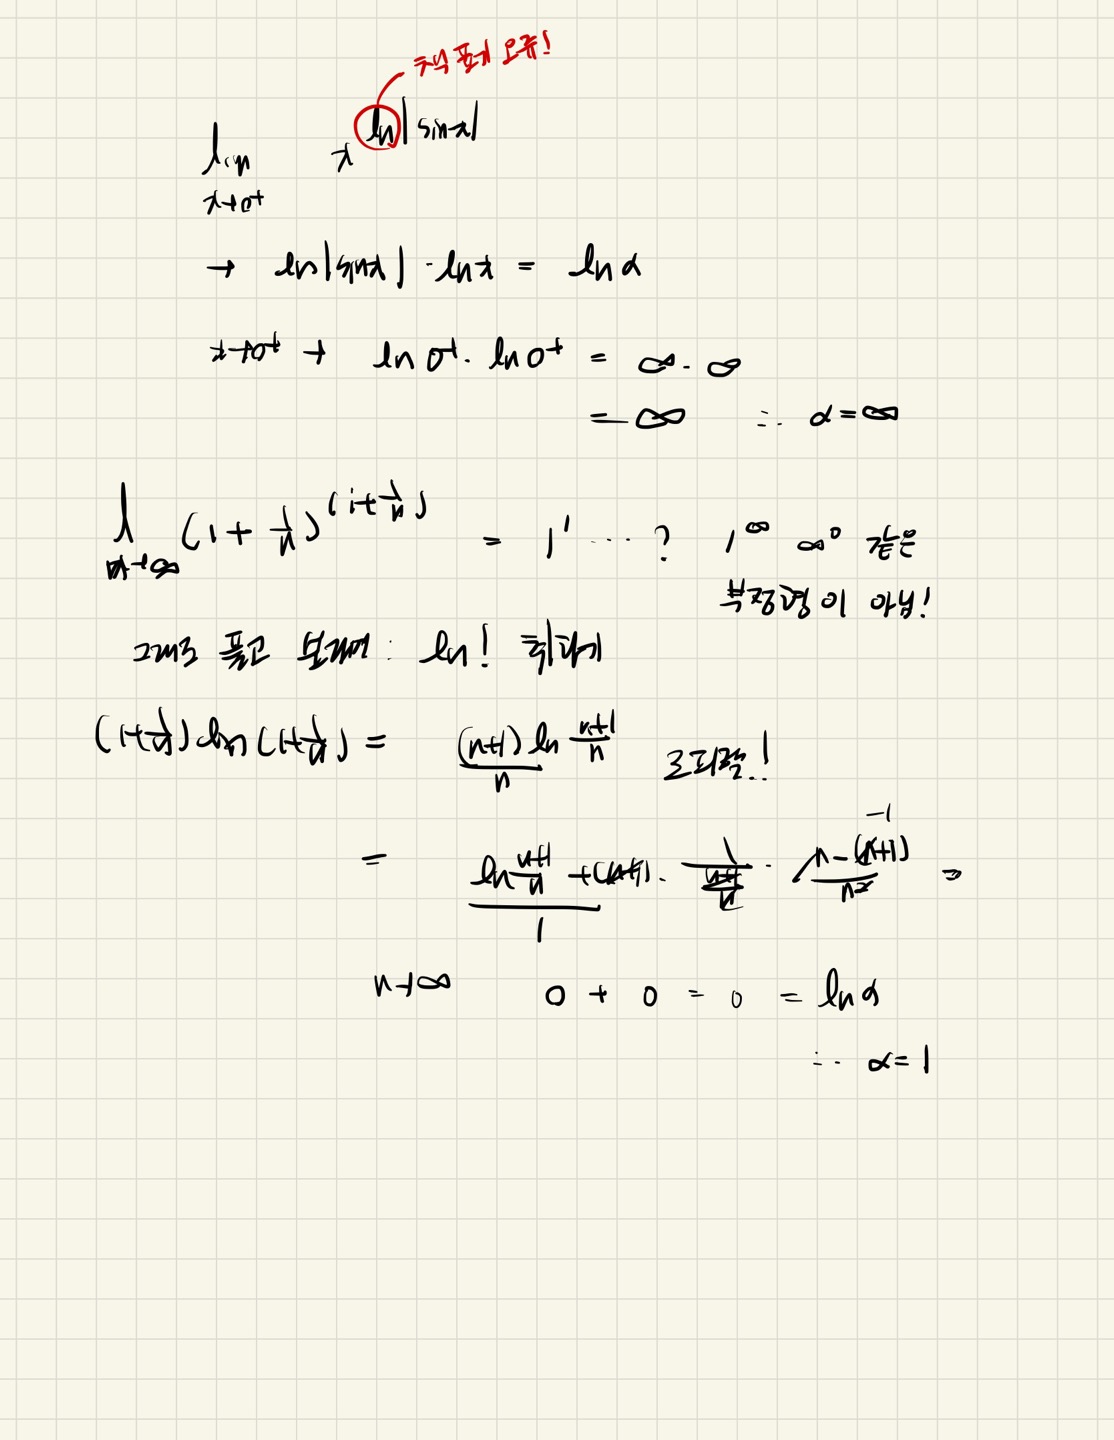 표기 오류!
lim x→0+ x^ln|sinx|
→ ln|sinx| · lnx = lnα
x→0+ → ln0+ · ln0+ = ∞ · ∞
= ∞ ∴ α=∞
l n→∞ (1+1/n)^(1+1/n) = 1^1 ...? 1^∞ ∞^0 같은
부정형이 아님!
그래도 풀고 보려면 : ln! 취하게
(1+1/n)ln(1+1/n) = (n+1)/n ln (n+1)/n 로피탈!
= (ln (n+1)/n + (n+1) · 1/((n+1)/n) · (n-(n+1))/n² -1)/1 =
n→∞ 0 + 0 = 0 = lnα
∴ α=1